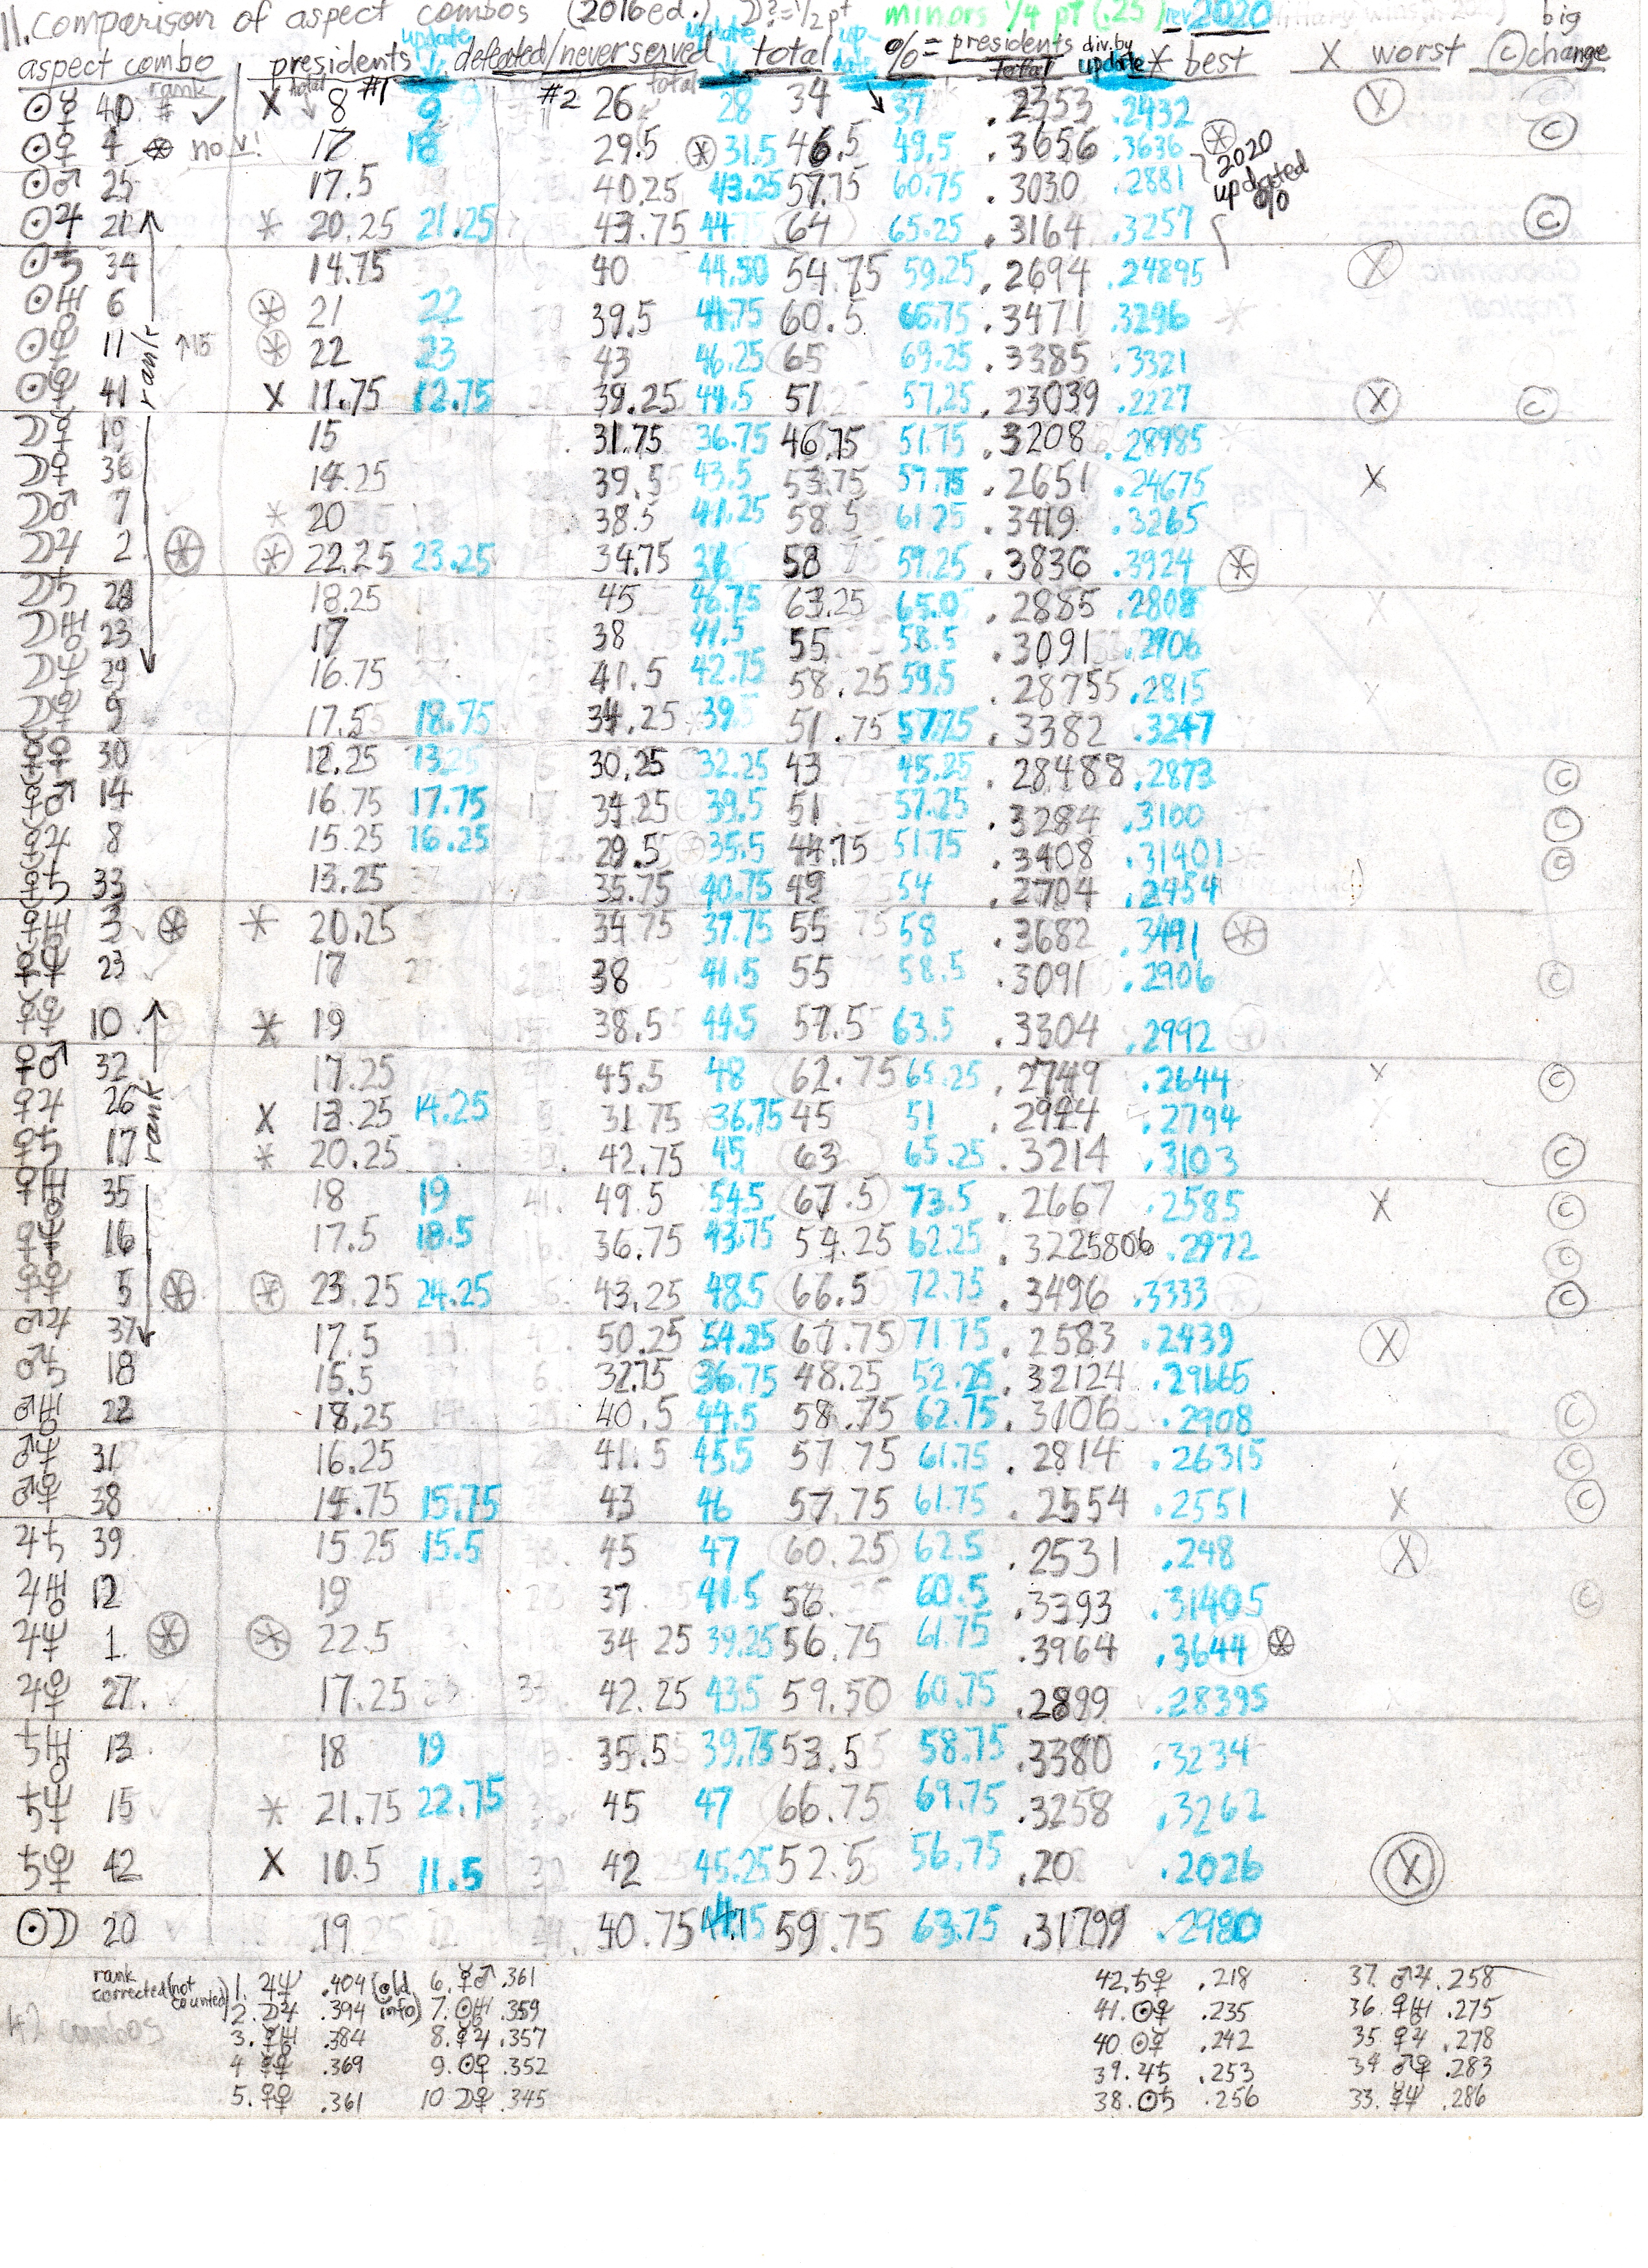 11. Comparison of aspect combos (2016 ed.) ☽?=½ pt minors ¼ pt (.25) rev 2020 big
aspect combo rank presidents total #1 update defeated/never served #2 total update total update %= presidents div. by total update * best X worst © change
☉☿ 40 X 8 9 26 28 34 37 .2353 .2432 X
☉♀ 4 no v! 17 18 29.5 * 31.5 46.5 49.5 .3656 .3636 * 2020 updated % ©
☉♂ 25 17.5 40.25 43.25 57.75 60.75 .3030 .2881
☉♃ 21 * 20.25 21.25 43.75 44 64 65.25 .3164 .3257 ©
☉♄ 34 14.75 40 44.50 54.75 59.25 .2694 .24895 X
☉♅ 6 * 21 22 39.5 44.75 60.5 66.75 .3471 .3296 *
☉♆ 11 ↑15 * 22 23 43 46.25 65 69.25 .3385 .3321
☉♇ 41 X 11.75 12.75 39.25 44.5 51 57.25 .23039 .2227 X ©
☽☿ 19 15 31.75 36.75 46.75 51.75 .3208 .28985
☽♀ 36 14.25 39.5 43.5 53.75 57.75 .2651 .24675 X
☽♂ 7 * 20 38.5 41.25 58.5 61.25 .3419 .3265
☽♃ 2 * * 22.25 23.25 34.75 36 58 59.25 .3836 .3924 *
☽♄ 28 18.25 45 46.75 63.25 65.0 .2885 .2808 X
☽♅ 23 17 38 41.5 55 58.5 .3091 .2906
☽♆ 29 16.75 41.5 42.75 58.25 59.5 .28755 .2815 X
☽♇ 9 17.5 18.75 34.25 39 51.75 57.75 .3382 .3247
☿♀ 30 12.25 13.25 30.25 32.25 43 45.25 .28488 .2873 ©
☿♂ 14 16.75 17.75 34.25 39.5 51 57.25 .3284 .3100 ©
☿♃ 8 15.25 16.25 29.5 35.5 44.75 51.75 .3408 .31401 ©
☿♄ 33 13.25 35.75 40.75 49 54 .2704 .2454
☿♅ 3 * * 20.25 34.75 37.75 55 58 .3682 .3491 *
☿♆ 23 17 38 41.5 55 58.5 .3091 .2906 ©
☿♇ 10 * 19 38.5 44.5 57.5 63.5 .3304 .2992
♀♂ 32 17.25 45.5 48 62.75 65.25 .2749 .2644 X ©
♀♃ 26 X 13.25 14.25 31.75 36.75 45 51 .2944 .2794
♀♄ 17 * 20.25 42.75 45 63 65.25 .3214 .3103 ©
♀♅ 35 18 19 49.5 54.5 67.5 73.5 .2667 .2585 X ©
♀♆ 16 17.5 18.5 36.75 43.75 54.25 62.25 .3225806 .2972 ©
♀♇ 5 * * 23.25 24.25 43.25 48.5 66.5 72.75 .3496 .3333 ©
♂♃ 37 17.5 50.25 54.25 67.75 71.75 .2583 .2439 X
♂♄ 18 15.5 32.75 36.75 48.25 52.25 .32124 .29665
♂♅ 22 18.25 40.5 44.5 58.75 62.75 .3106 .2908 ©
♂♆ 31 16.25 41.5 45.5 57.75 61.75 .2814 .26315 ©
♂♇ 38 14.75 15.75 43 46 57.75 61.75 .2554 .2551 X ©
♃♄ 39 15.25 15.5 45 47 60.25 62.5 .2531 .248 X
♃♅ 12 19 37 41.5 56 60.5 .3393 .31405 ©
♃♆ 1. * * 22.5 34.25 39.25 56.75 61.75 .3964 .3644 *
♃♇ 27. 17.25 42.25 43.5 59.50 60.75 .2899 .28395
♄♅ 13 18 19 35.5 39.75 53.5 58.75 .3380 .3234
♄♆ 15 * 21.75 22.75 45 47 66.75 69.75 .3258 .3262
♄♇ 42 X 10.5 11.5 42 45.25 52.5 56.75 .20 .2026 X
☉☽ 20 19 40.75 59.75 63.75 .31799 .2980
rank corrected (not counted) 1. ♃♆ .404 (old info) 6. ☿♂ .361 42. ♄♇ .218 37. ♂♃ .258
2. ☽♃ .394 7. ☉♅ .359 41. ☉♇ .235 36. ♀♅ .275
42 combos 3. ☿♅ .384 8. ☿♃ .357 40 ☉☿ .242 35 ♀♃ .278
4 ☿♇ .369 9. ☉♀ .352 39. ♃♄ .253 34. ♂♇ .283
5. ♀♇ .361 10 ☽♇ .345 38. ☉♄ .256 33. ☿♆ .286